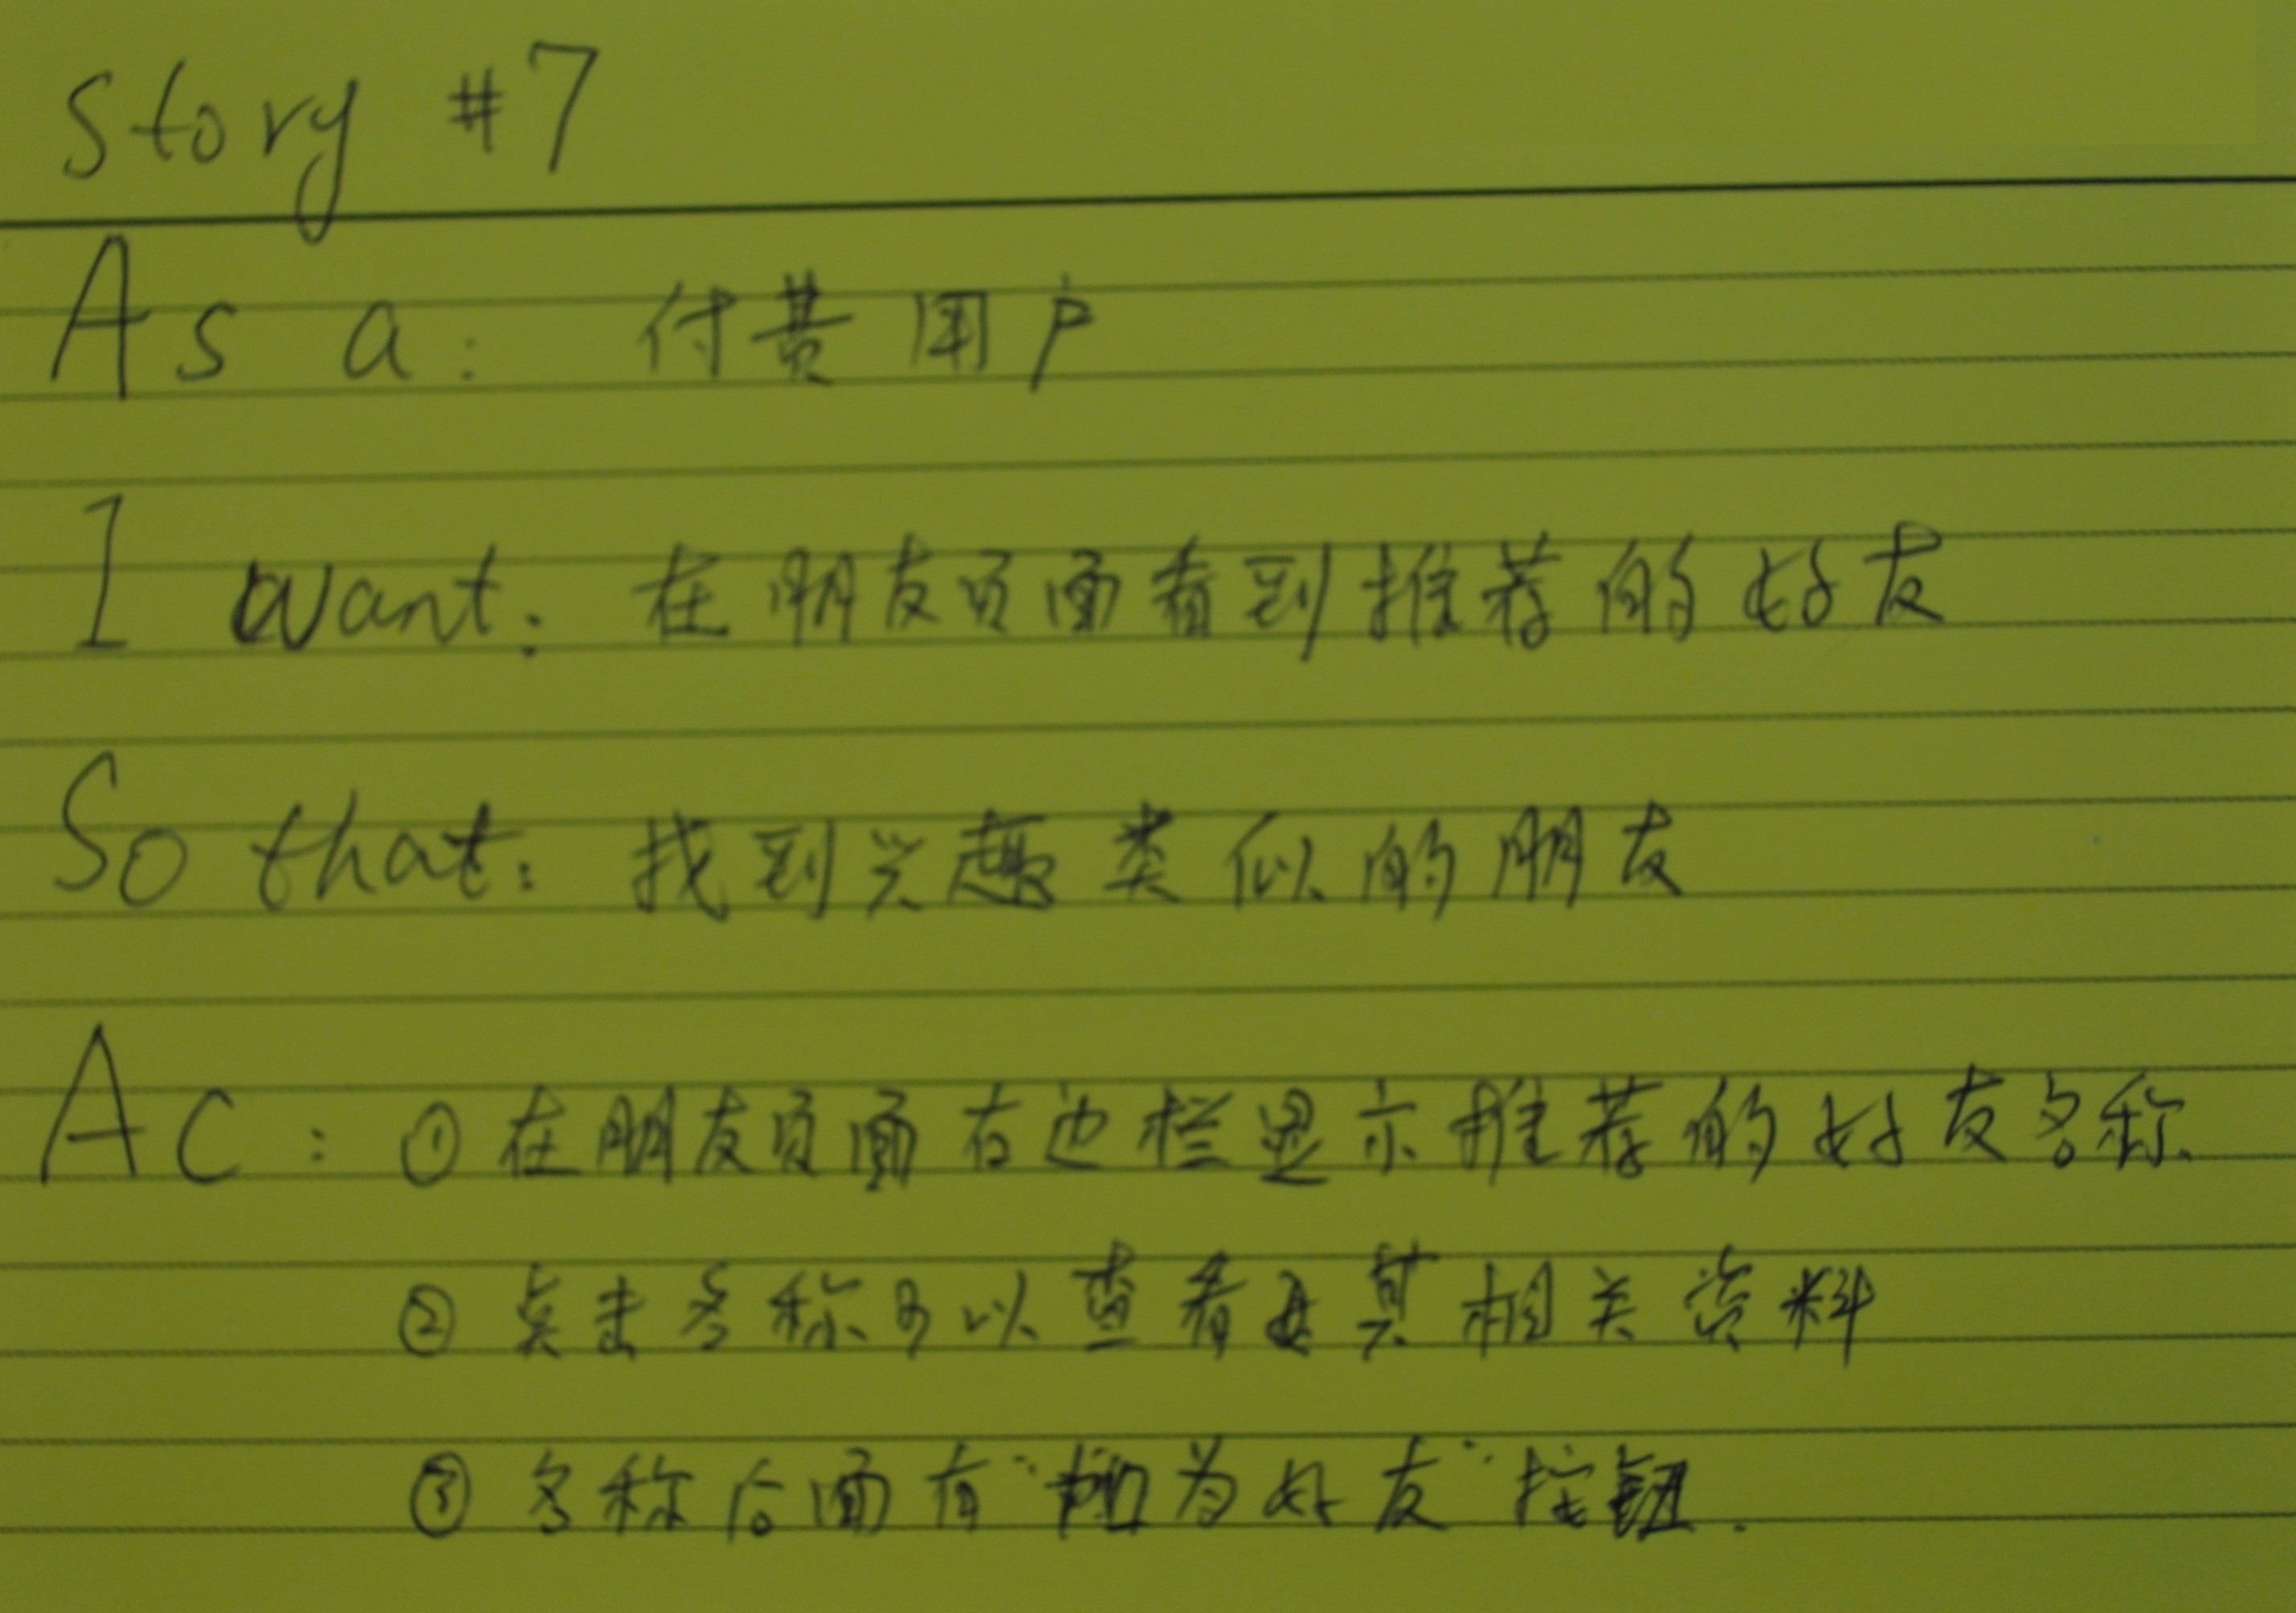 Story #7
As a: 付费用户
I want: 在朋友页面看到推荐的好友
So that: 找到兴趣类似的朋友
AC: ①在朋友页面右边栏显示推荐的好友名称.
②点击名称可以查看其相关资料
③名称后面有"加为好友"按钮.